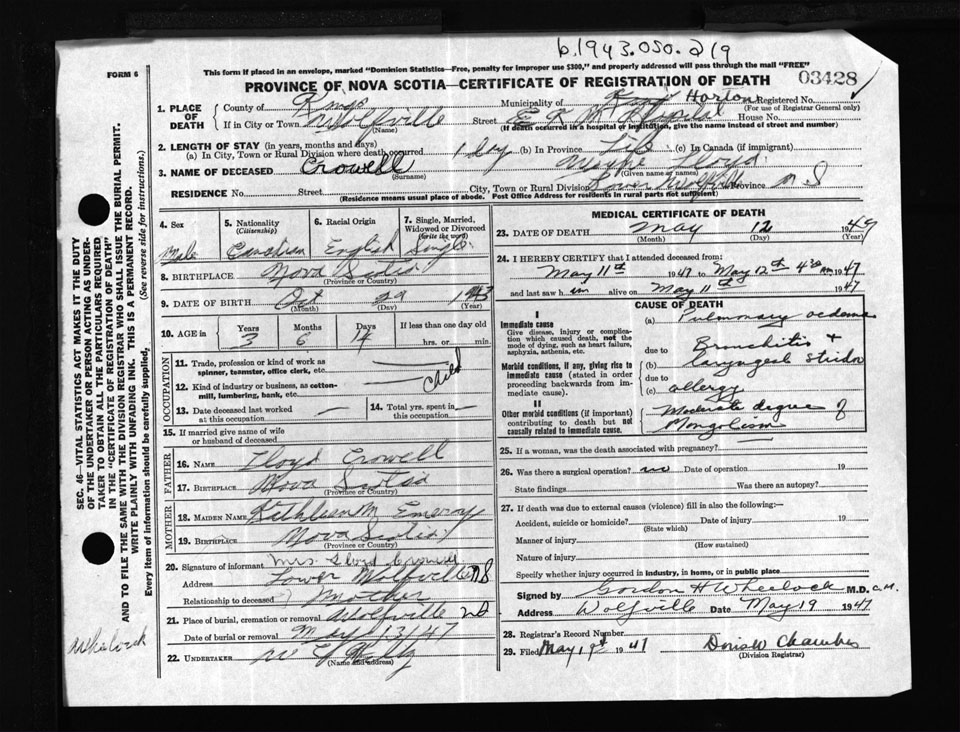 b.1943.050.219
FORM 6
This form if placed in an envelope, marked "Dominion Statistics—Free, penalty for improper use $300," and properly addressed will pass through the mail "FREE"
PROVINCE OF NOVA SCOTIA—CERTIFICATE OF REGISTRATION OF DEATH
03428
1. PLACE OF DEATH
County of Kings Municipality of Kings Horton Registered No.
(For use of Registrar General only)
If in City or Town Wolfville Street E K M Hospital House No.
(Name) (If death occurred in a hospital or institution, give the name instead of street and number)
2. LENGTH OF STAY (in years, months and days)
(a) In City, Town or Rural Division where death occurred 1 day (b) In Province Life (c) In Canada (if immigrant)
3. NAME OF DECEASED Crowell Wayne Lloyd
(Surname) (Given name or names)
RESIDENCE No. Street City, Town or Rural Division Lower Wolfville Province N S
(Residence means usual place of abode. Post Office Address for residents in rural parts not sufficient)
4. Sex 5. Nationality (Citizenship) 6. Racial Origin 7. Single, Married, Widowed or Divorced (write the word)
Male Canadian English Single
8. BIRTHPLACE Nova Scotia
(Province or Country)
9. DATE OF BIRTH Oct 29 1943
(Month) (Day) (Year)
10. AGE in Years Months Days If less than one day old
3 6 14 hrs. or min.
OCCUPATION
11. Trade, profession or kind of work as spinner, teamster, office clerk, etc.
12. Kind of industry or business, as cotton-mill, lumbering, bank, etc.
Child
13. Date deceased last worked at this occupation — 14. Total yrs. spent in this occupation —
15. If married give name of wife or husband of deceased
FATHER
16. NAME Lloyd Crowell
17. BIRTHPLACE Nova Scotia
(Province or Country)
MOTHER
18. MAIDEN NAME Kathleen M
19. BIRTHPLACE Nova Scotia
(Province or Country)
20. Signature of informant Mrs Lloyd Crowell
Address Lower Wolfville N S
Relationship to deceased Mother
21. Place of burial, cremation or removal Wolfville N S
Date of burial or removal May 13/47
22. UNDERTAKER
(Name and address)
MEDICAL CERTIFICATE OF DEATH
23. DATE OF DEATH May 12 1947
(Month) (Day) (Year)
24. I HEREBY CERTIFY that I attended deceased from:
May 11th 1947 to May 12th 4 30 AM 1947
and last saw him alive on May 11th 1947
CAUSE OF DEATH
I
Immediate cause
Give disease, injury or complication which caused death, not the mode of dying, such as heart failure, asphyxia, asthenia, etc.
(a) Pulmonary oedema
due to
Morbid conditions, if any, giving rise to immediate cause (stated in order proceeding backwards from immediate cause).
(b) Bronchitis + laryngeal stridor
due to
(c) allergy
II
Other morbid conditions (if important) contributing to death but not causally related to immediate cause.
Moderate degree of Mongolism
25. If a woman, was the death associated with pregnancy?
26. Was there a surgical operation? no Date of operation 19
State findings Was there an autopsy?
27. If death was due to external causes (violence) fill in also the following:—
Accident, suicide or homicide? Date of injury 19
(State which)
Manner of injury
(How sustained)
Nature of injury
Specify whether injury occurred in industry, in home, or in public place
Signed by Gordon H Wheelock M.D. C.M.
Address Wolfville Date May 19 1947
28. Registrar's Record Number
29. Filed May 19th 1947 Doris W Chambers
(Division Registrar)
SEC. 46—VITAL STATISTICS ACT MAKES IT THE DUTY
OF THE UNDERTAKER OR PERSON ACTING AS UNDERTAKER TO OBTAIN ALL THE PARTICULARS REQUIRED
IN THE "CERTIFICATE OF REGISTRATION OF DEATH"
AND TO FILE THE SAME WITH THE DIVISION REGISTRAR WHO SHALL ISSUE THE BURIAL PERMIT.
WRITE PLAINLY WITH UNFADING INK. THIS IS A PERMANENT RECORD.
Every item of information should be carefully supplied. (See reverse side for instructions.)
Wheelock